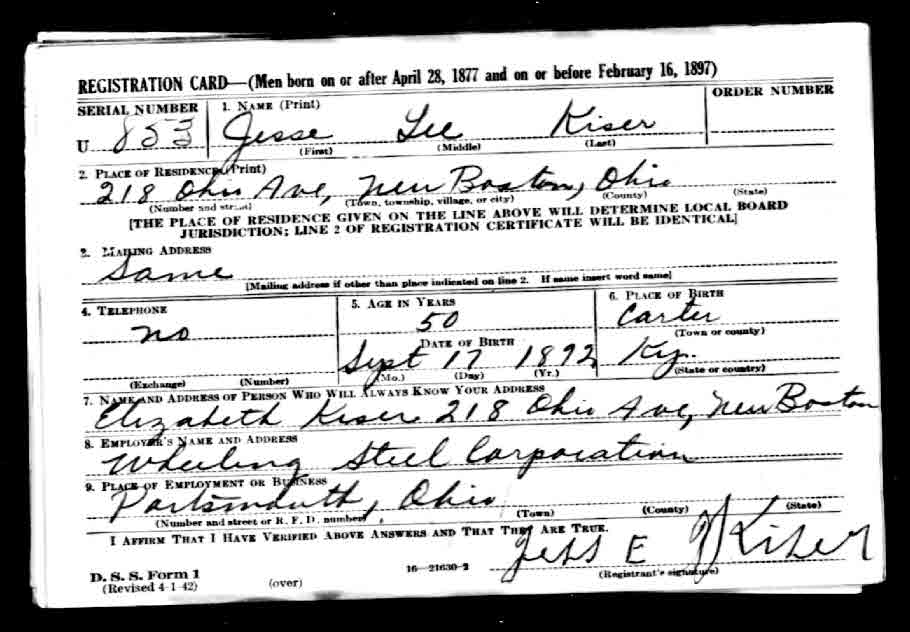 REGISTRATION CARD—(Men born on or after April 28, 1877 and on or before February 16, 1897)
SERIAL NUMBER
1. NAME (Print)
ORDER NUMBER
U 853
Jesse Lee Kiser
(First) (Middle) (Last)
2. PLACE OF RESIDENCE (Print)
218 Ohio Ave, New Boston, Ohio
(Number and street) (Town, township, village, or city) (County) (State)
[THE PLACE OF RESIDENCE GIVEN ON THE LINE ABOVE WILL DETERMINE LOCAL BOARD
JURISDICTION; LINE 2 OF REGISTRATION CERTIFICATE WILL BE IDENTICAL]
3. MAILING ADDRESS
Same
[Mailing address if other than place indicated on line 2. If same insert word same]
4. TELEPHONE
5. AGE IN YEARS
6. PLACE OF BIRTH
no
50
Carter
(Town or county)
DATE OF BIRTH
Sept 17 1892
Ky.
(Exchange) (Number)
(Mo.) (Day) (Yr.)
(State or country)
7. NAME AND ADDRESS OF PERSON WHO WILL ALWAYS KNOW YOUR ADDRESS
Elizabeth Kiser 218 Ohio Ave, New Boston
8. EMPLOYER'S NAME AND ADDRESS
Wheeling Steel Corporation
9. PLACE OF EMPLOYMENT OR BUSINESS
Portsmouth, Ohio
(Number and street or R. F. D. number) (Town) (County) (State)
I AFFIRM THAT I HAVE VERIFIED ABOVE ANSWERS AND THAT THEY ARE TRUE.
Kiser
D. S. S. Form 1
(Revised 4-1-42) (over)
16—21630-2
(Registrant's signature)